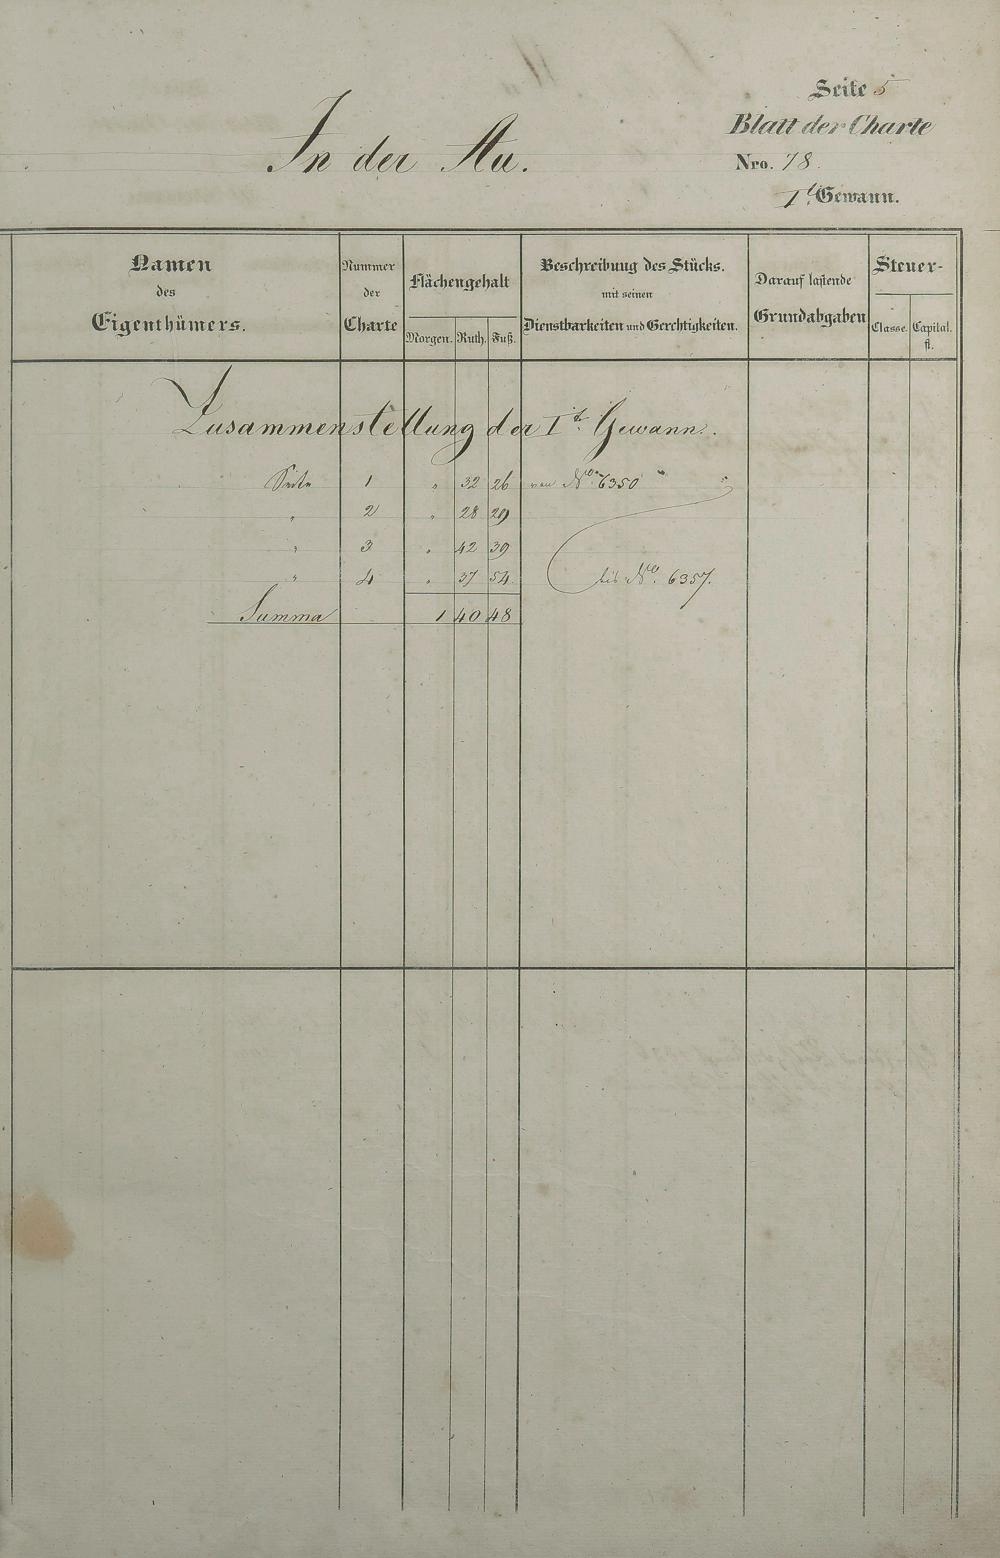 Seite 5
Blatt der Charte
In der Au.
Nro. 78.
Ite Gewann.
Namen des Eigenthümers.
Nummer der Charte
Flächengehalt
Morgen. Ruth. Fuß.
Beschreibung des Stücks. mit seinen Dienstbarkeiten und Gerechtigkeiten.
Darauf lastende Grundabgaben
Steuer-
Classe. Capital. fl.
Zusammenstellung der Itn. Gewann.
Seite 1 " 32 26 von No. 6350
" 2 " 28 29
" 3 " 42 39
" 4 " 37 54 bis No. 6357.
Summa 1 40 48